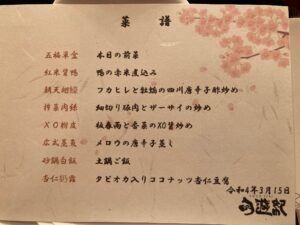 菜譜
五福単盒 本日の前菜
紅米醤鴨 鴨の赤米煮込み
フカヒレと牡蠣の四川唐辛子酢炒め
搾菜肉絲 細切り豚肉とザーサイの炒め
板春雨と香菜のXO醤炒め
メロウの唐辛子蒸し
砂鍋白飯 土鍋ご飯
杏仁奶露 タピオカ入りココナッツ杏仁豆腐
令和4年3月15日